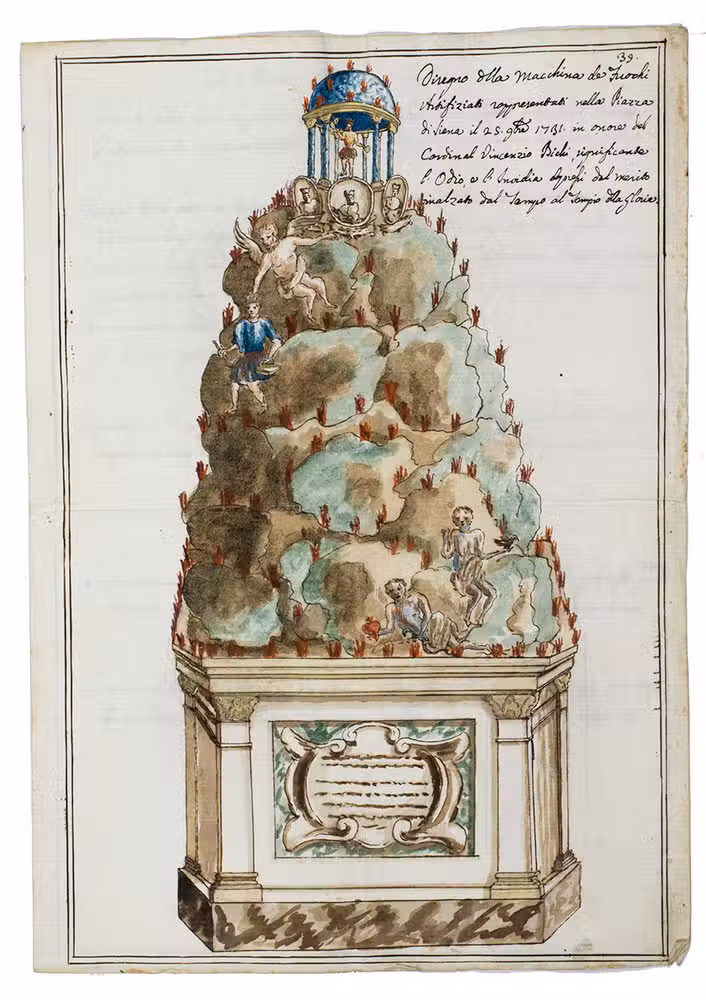 39.
Disegno dlla Macchina de Fuochi
Artifiziati rappresentati nella Piazza
di Siena il 25. 9bre 1731. in onore del
Cardinal Vincenzio Bichi, significante
l'Odio, e l'Invidia depressi dal merito
inalzato dal Tempo al Tempio dlla Gloria.